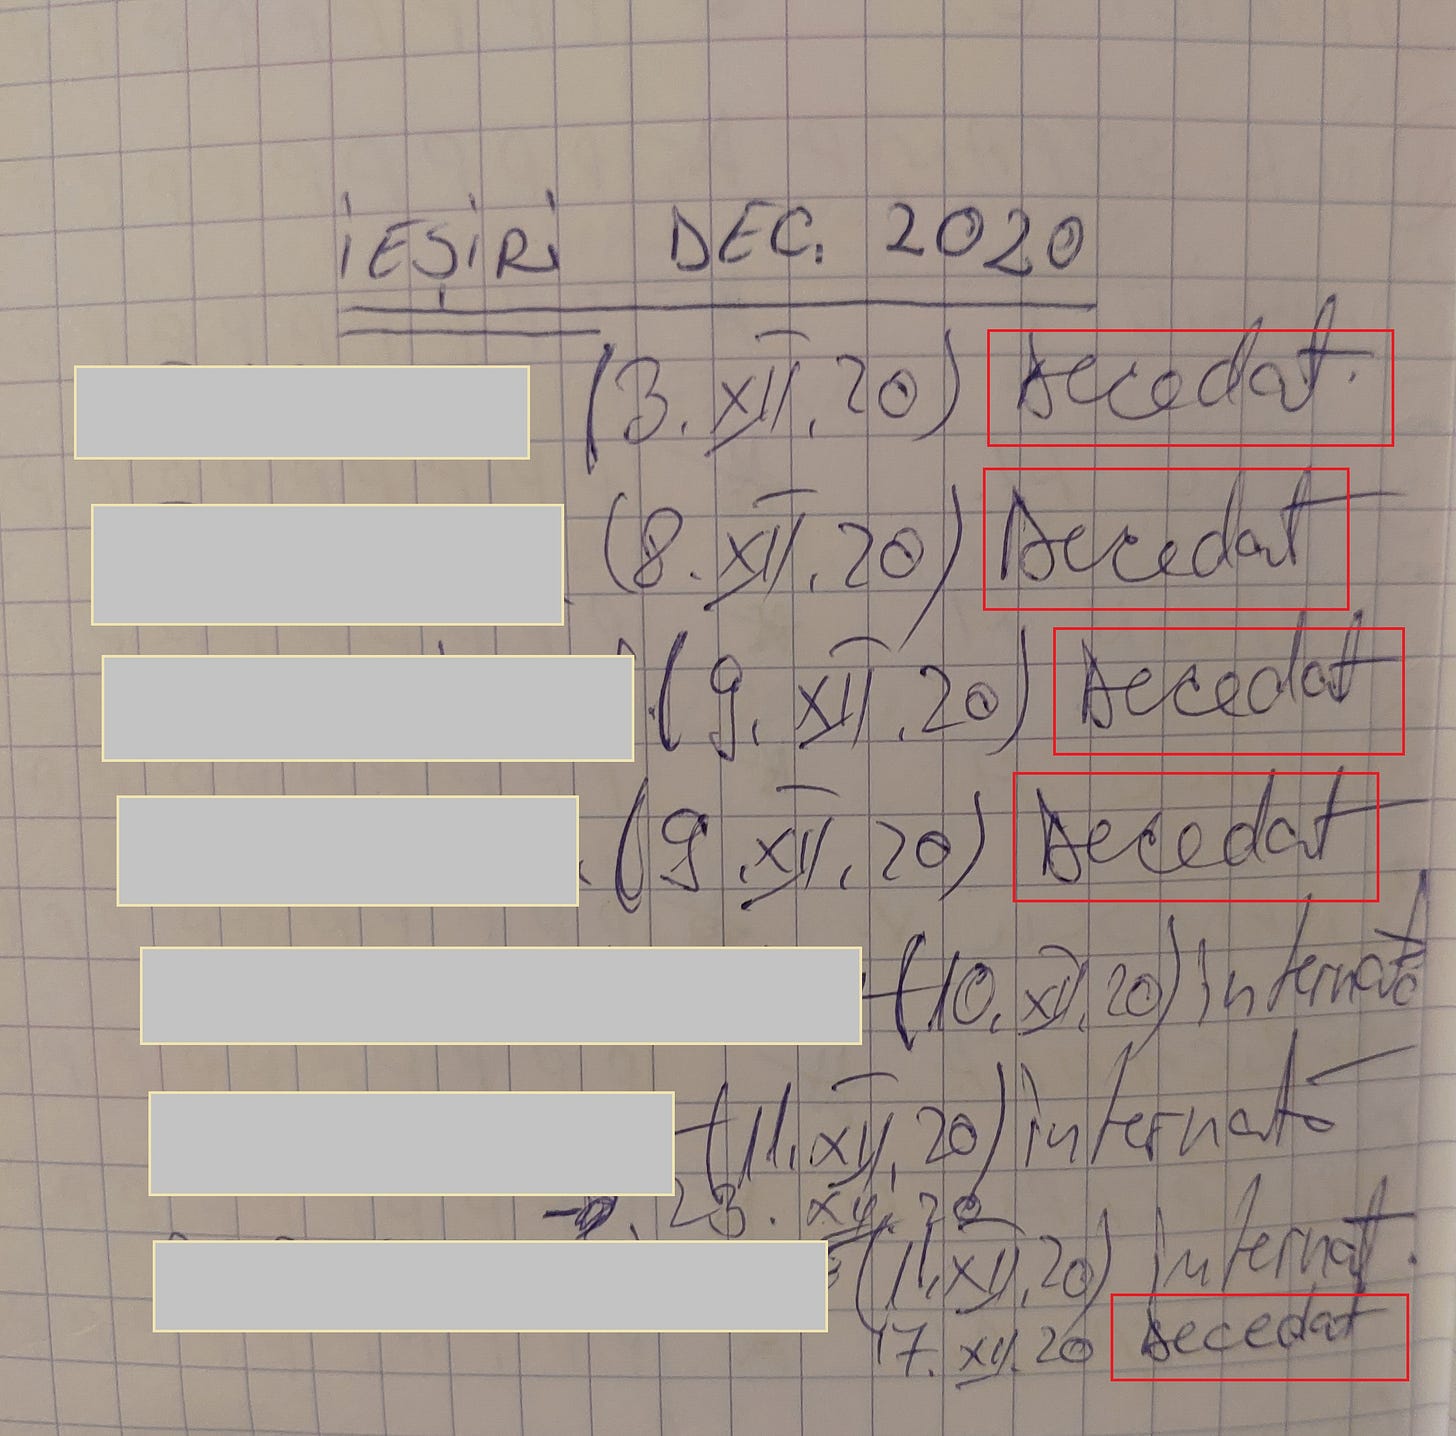 IEȘIRI DEC. 2020
(3.XII.20) Decedat.
(8.XII.20) Decedat
(9.XII.20) Decedat
(9.XII.20) Decedat
(10.XII.20) internată
(11.XII.20) internată
23.XII.20
(11.XII.20) internat.
17.XII.20 Decedat